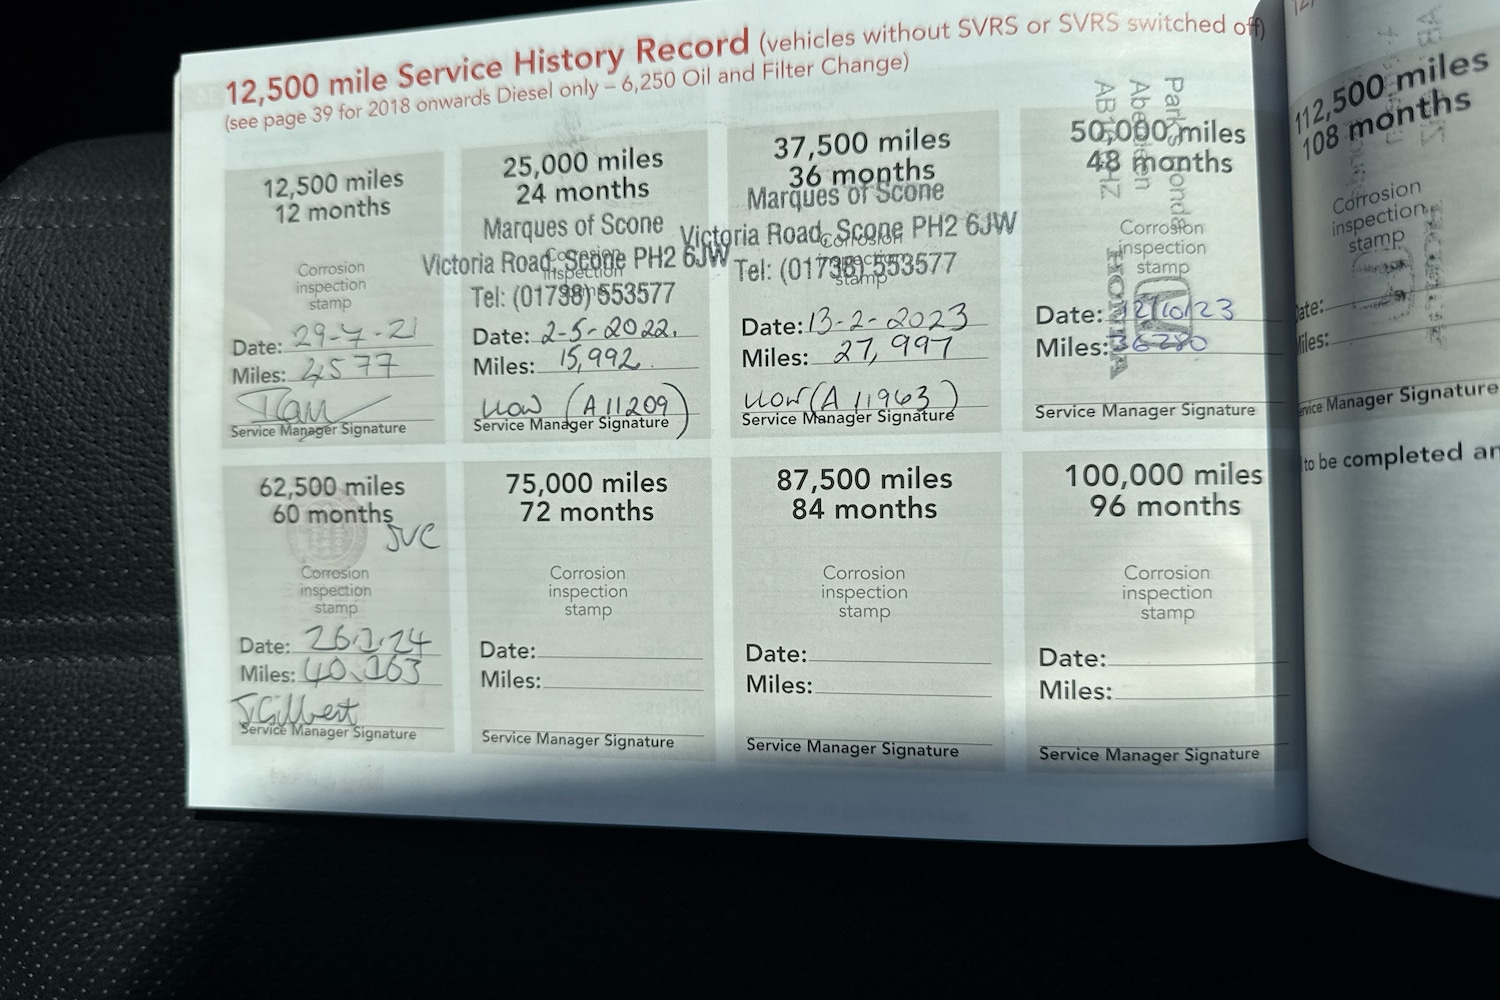 12,500 mile Service History Record (vehicles without SVRS or SVRS switched off)
(see page 39 for 2018 onwards Diesel only – 6,250 Oil and Filter Change)
12,500 miles
12 months
Corrosion
inspection
stamp
Date: 29-7-21
Miles: 4577
Service Manager Signature
25,000 miles
24 months
Marques of Scone
Victoria Road, Scone PH2 6JW
Tel: (01738) 553577
Corrosion
inspection
Date: 2-5-2022.
Miles: 15,992.
(A11209)
Service Manager Signature
37,500 miles
36 months
Marques of Scone
Victoria Road, Scone PH2 6JW
Tel: (01738) 553577
Corrosion
inspection
stamp
Date: 13-2-2023
Miles: 27,997
(A11963)
Service Manager Signature
50,000 miles
48 months
Parks Honda
Aberdeen
Corrosion
inspection
stamp
HONDA
Date: 12/10/23
Miles: 36280
Service Manager Signature
62,500 miles
60 months
SVC
Corrosion
inspection
stamp
Date:
Miles:
JGilbert
Service Manager Signature
75,000 miles
72 months
Corrosion
inspection
stamp
Date:
Miles:
Service Manager Signature
87,500 miles
84 months
Corrosion
inspection
stamp
Date:
Miles:
Service Manager Signature
100,000 miles
96 months
Corrosion
inspection
stamp
Date:
Miles:
Service Manager Signature
112,500 miles
108 months
Corrosion
inspection
stamp
Date:
Miles:
Service Manager Signature
to be completed an